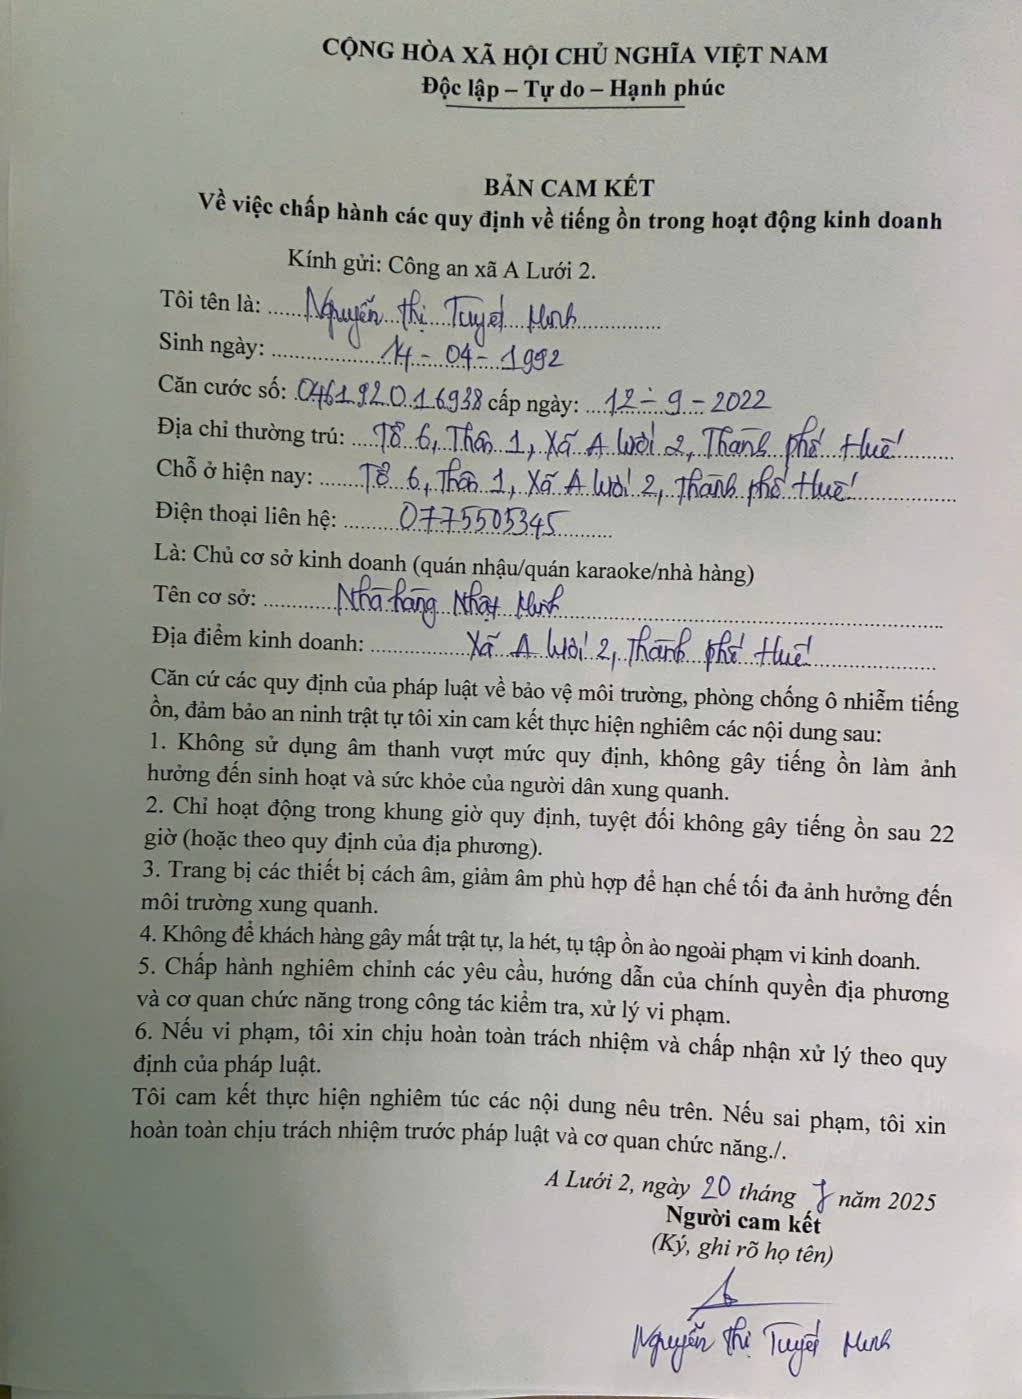 CỘNG HÒA XÃ HỘI CHỦ NGHĨA VIỆT NAM
Độc lập – Tự do – Hạnh phúc
BẢN CAM KẾT
Về việc chấp hành các quy định về tiếng ồn trong hoạt động kinh doanh
Kính gửi: Công an xã A Lưới 2.
Tôi tên là: Nguyễn Thị Tuyết Minh
Sinh ngày: 14 - 04 - 1992
Căn cước số: 046192016938 cấp ngày: 12 - 9 - 2022
Địa chỉ thường trú: Tổ 6, Thôn 1, Xã A Lưới 2, Thành phố Huế
Chỗ ở hiện nay: Tổ 6, Thôn 1, Xã A Lưới 2, Thành phố Huế
Điện thoại liên hệ: 0775505345
Là: Chủ cơ sở kinh doanh (quán nhậu/quán karaoke/nhà hàng)
Tên cơ sở: Nhà hàng Nhật Minh
Địa điểm kinh doanh: Xã A Lưới 2, Thành phố Huế
Căn cứ các quy định của pháp luật về bảo vệ môi trường, phòng chống ô nhiễm tiếng
ồn, đảm bảo an ninh trật tự tôi xin cam kết thực hiện nghiêm các nội dung sau:
1. Không sử dụng âm thanh vượt mức quy định, không gây tiếng ồn làm ảnh
hưởng đến sinh hoạt và sức khỏe của người dân xung quanh.
2. Chỉ hoạt động trong khung giờ quy định, tuyệt đối không gây tiếng ồn sau 22
giờ (hoặc theo quy định của địa phương).
3. Trang bị các thiết bị cách âm, giảm âm phù hợp để hạn chế tối đa ảnh hưởng đến
môi trường xung quanh.
4. Không để khách hàng gây mất trật tự, la hét, tụ tập ồn ào ngoài phạm vi kinh doanh.
5. Chấp hành nghiêm chỉnh các yêu cầu, hướng dẫn của chính quyền địa phương
và cơ quan chức năng trong công tác kiểm tra, xử lý vi phạm.
6. Nếu vi phạm, tôi xin chịu hoàn toàn trách nhiệm và chấp nhận xử lý theo quy
định của pháp luật.
Tôi cam kết thực hiện nghiêm túc các nội dung nêu trên. Nếu sai phạm, tôi xin
hoàn toàn chịu trách nhiệm trước pháp luật và cơ quan chức năng./.
A Lưới 2, ngày 20 tháng 7 năm 2025
Người cam kết
(Ký, ghi rõ họ tên)
Nguyễn Thị Tuyết Minh